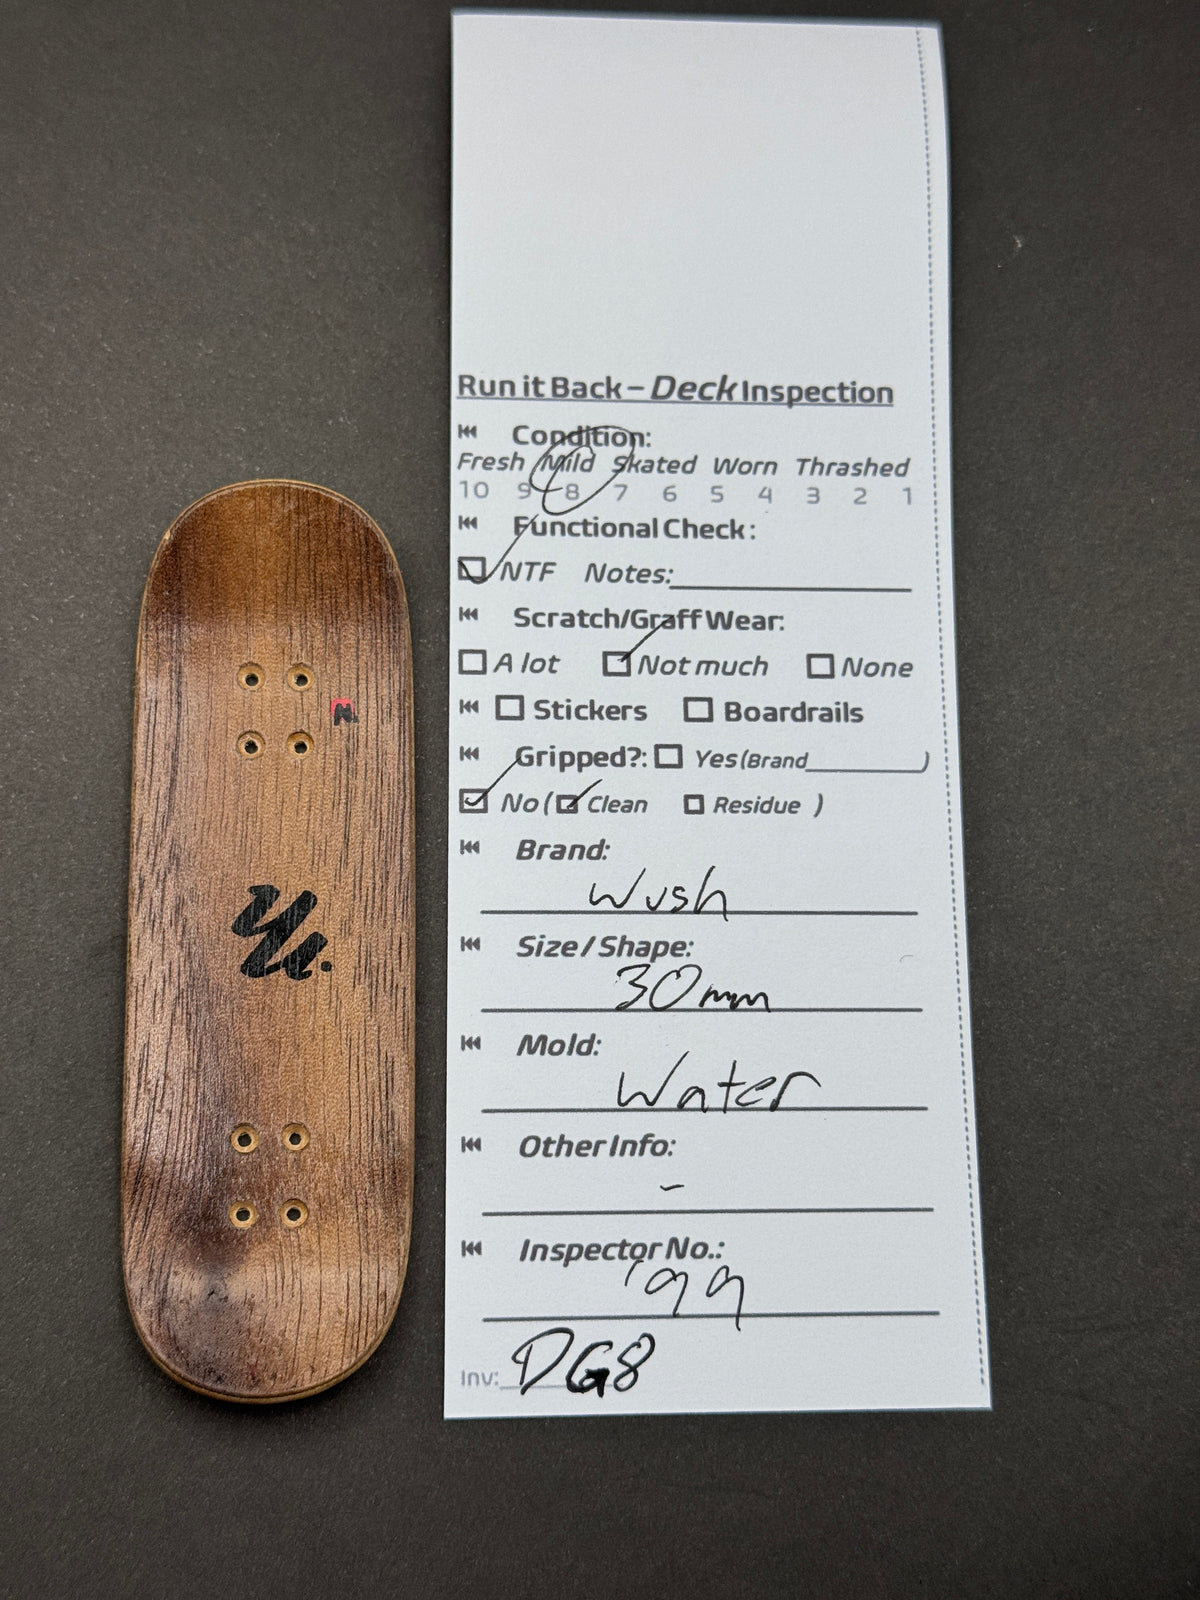 Run it Back – Deck Inspection
Condition:
Fresh Mild Skated Worn Thrashed
10 9 8 7 6 5 4 3 2 1
Functional Check:
NTF Notes:
Scratch/Graff Wear:
A lot Not much None
Stickers Boardrails
Gripped?: Yes (Brand )
No ( Clean Residue )
Brand:
Wush
Size / Shape:
30mm
Mold:
Water
Other Info:
-
Inspector No.:
'99
Inv: DG8
M.